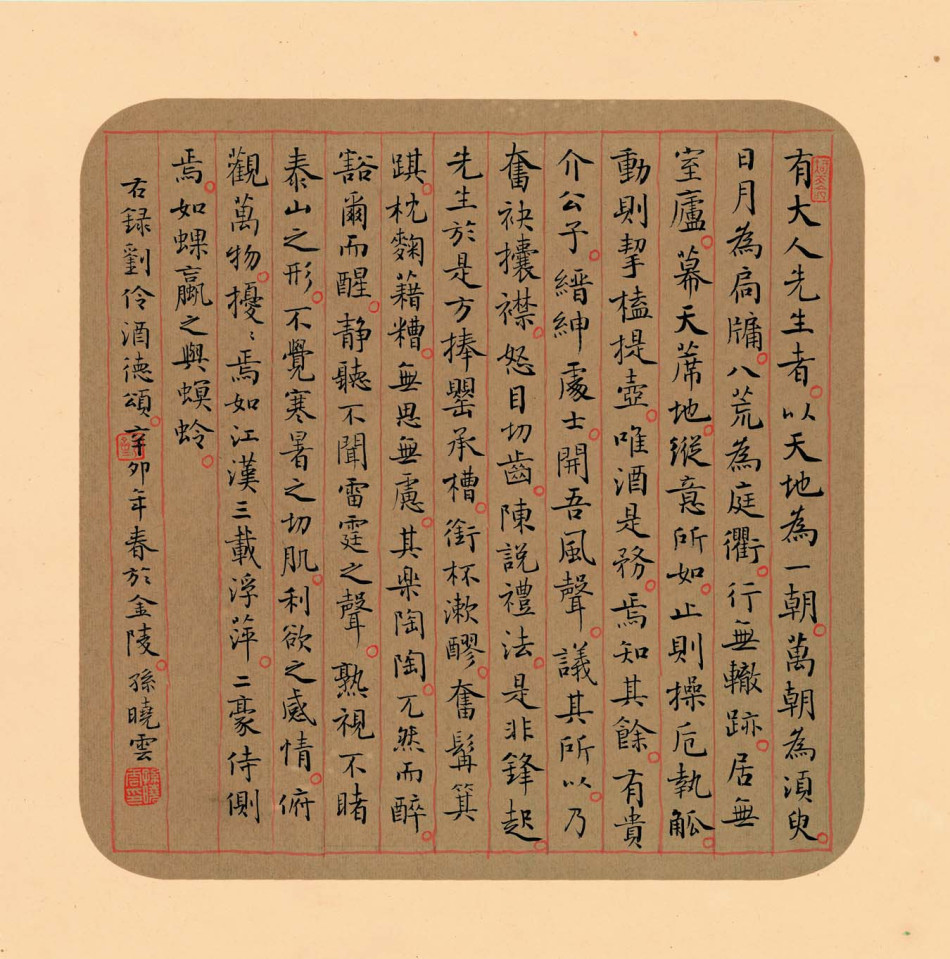 有大人先生者。以天地為一朝。萬朝為須臾。
日月為扃牖。八荒為庭衢。行無轍跡。居無
室廬。幕天席地。縱意所如。止則操卮執觚。
動則挈榼提壺。唯酒是務。焉知其餘。有貴
介公子。縉紳處士。開吾風聲。議其所以。乃
奮袂攘襟。怒目切齒。陳說禮法。是非鋒起。
先生於是方捧罌承槽。銜杯漱醪。奮髯箕
踑。枕麴藉糟。無思無慮。其樂陶陶。兀然而醉。
豁爾而醒。靜聽不聞雷霆之聲。熟視不睹
泰山之形。不覺寒暑之切肌。利欲之感情。俯
觀萬物。擾〻焉如江漢三載浮萍。二豪侍側
焉。如蜾蠃之與螟蛉。
右録劉伶酒德頌。辛卯年春於金陵。孫曉雲